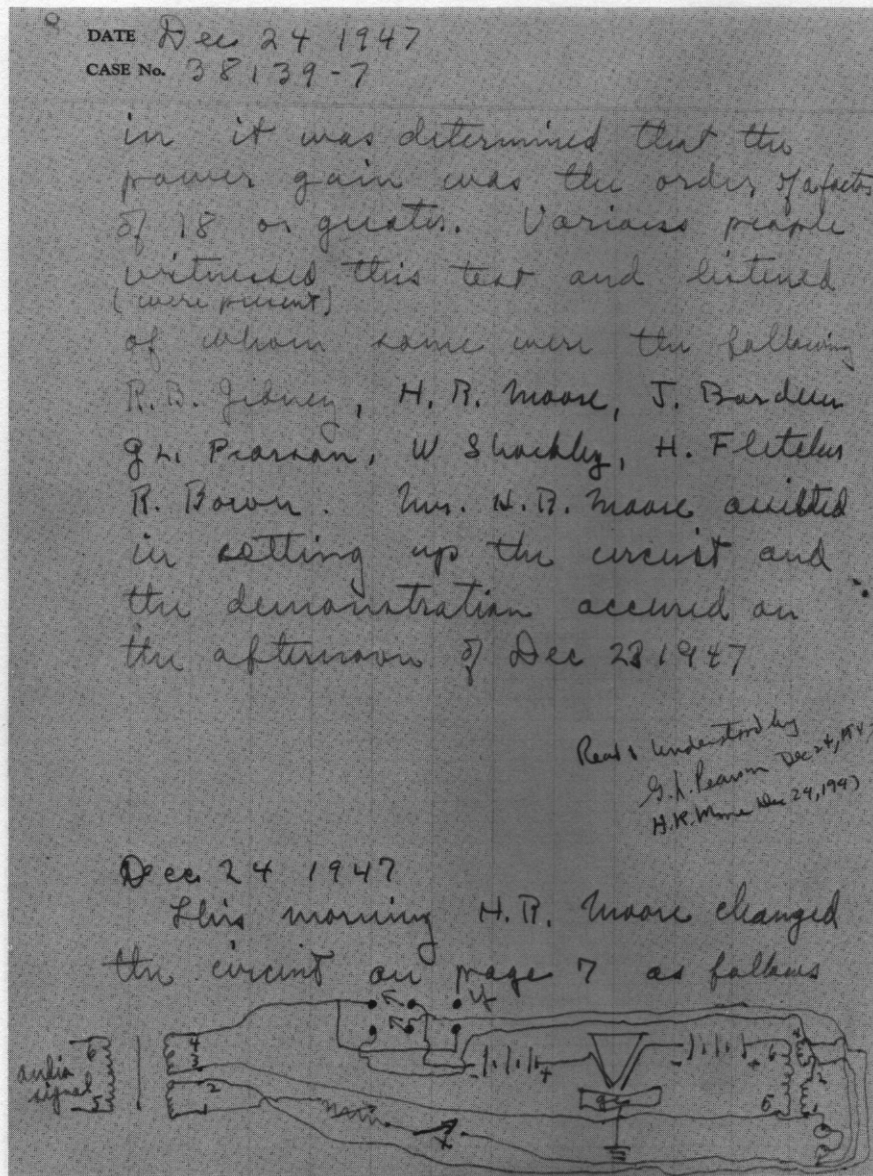 DATE Dec 24 1947
CASE No. 38139-7
in it was determined that the
power gain was the order of a factor
of 18 or greater. Various people
witnessed this test and listened
(were present)
of whom some were the following
R.B. Gibney, H.R. Moore, J. Bardeen
G L. Pearson, W Shockley, H. Fletcher
R. Bown. Mr. H.R. Moore assisted
in setting up the circuit and
the demonstration occured on
the afternoon of Dec 23 1947
Read & Understood by
G.L. Pearson Dec 24, 1947
H.R. Moore Dec 24, 1947
Dec 24 1947
This morning H.R. Moore changed
the circuit on page 7 as follows
audio
signal
6
5
4
3
2
1
- +
- +
Ge
6
5